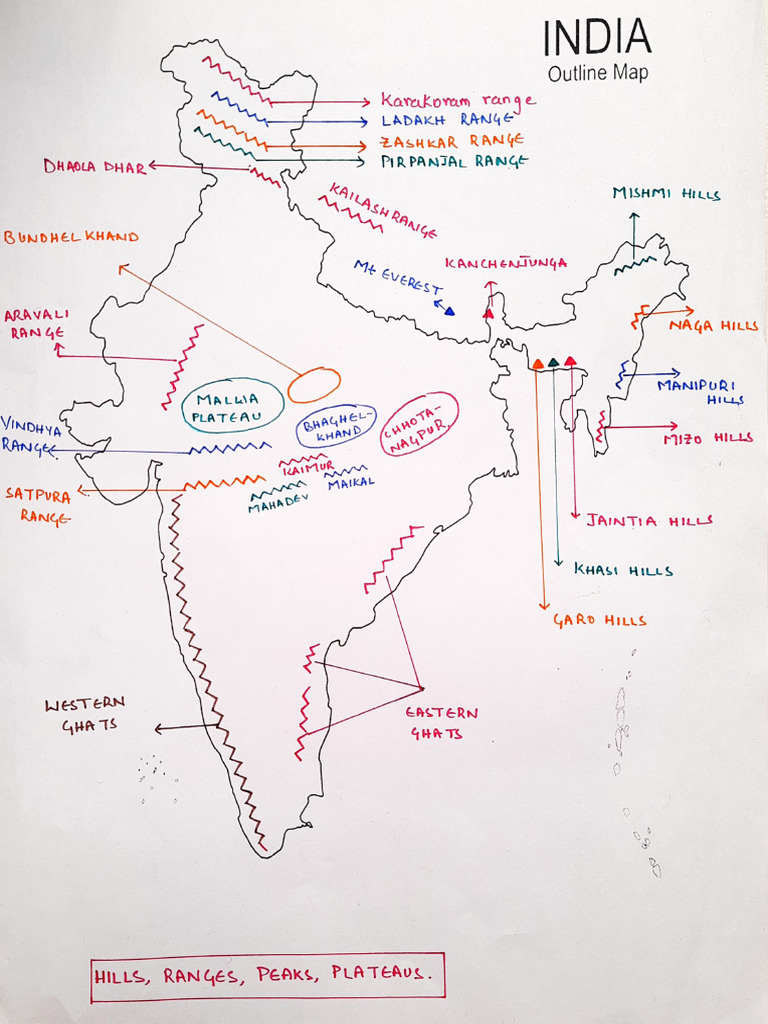 INDIA
Outline Map
Karakoram range
LADAKH RANGE
ZASHKAR RANGE
PIRPANJAL RANGE
DHAOLA DHAR
KAILASH RANGE
MISHMI HILLS
BUNDHELKHAND
Mt EVEREST
KANCHENJUNGA
ARAVALI
RANGE
NAGA HILLS
MALWA
PLATEAU
BHAGHEL-
KHAND
CHHOTA-
NAGPUR.
MANIPURI
HILLS
VINDHYA
RANGE
MIZO HILLS
KAIMUR
MAHADEV
MAIKAL
SATPURA
RANGE
JAINTIA HILLS
KHASI HILLS
GARO HILLS
WESTERN
GHATS
EASTERN
GHATS
HILLS, RANGES, PEAKS, PLATEAUS.